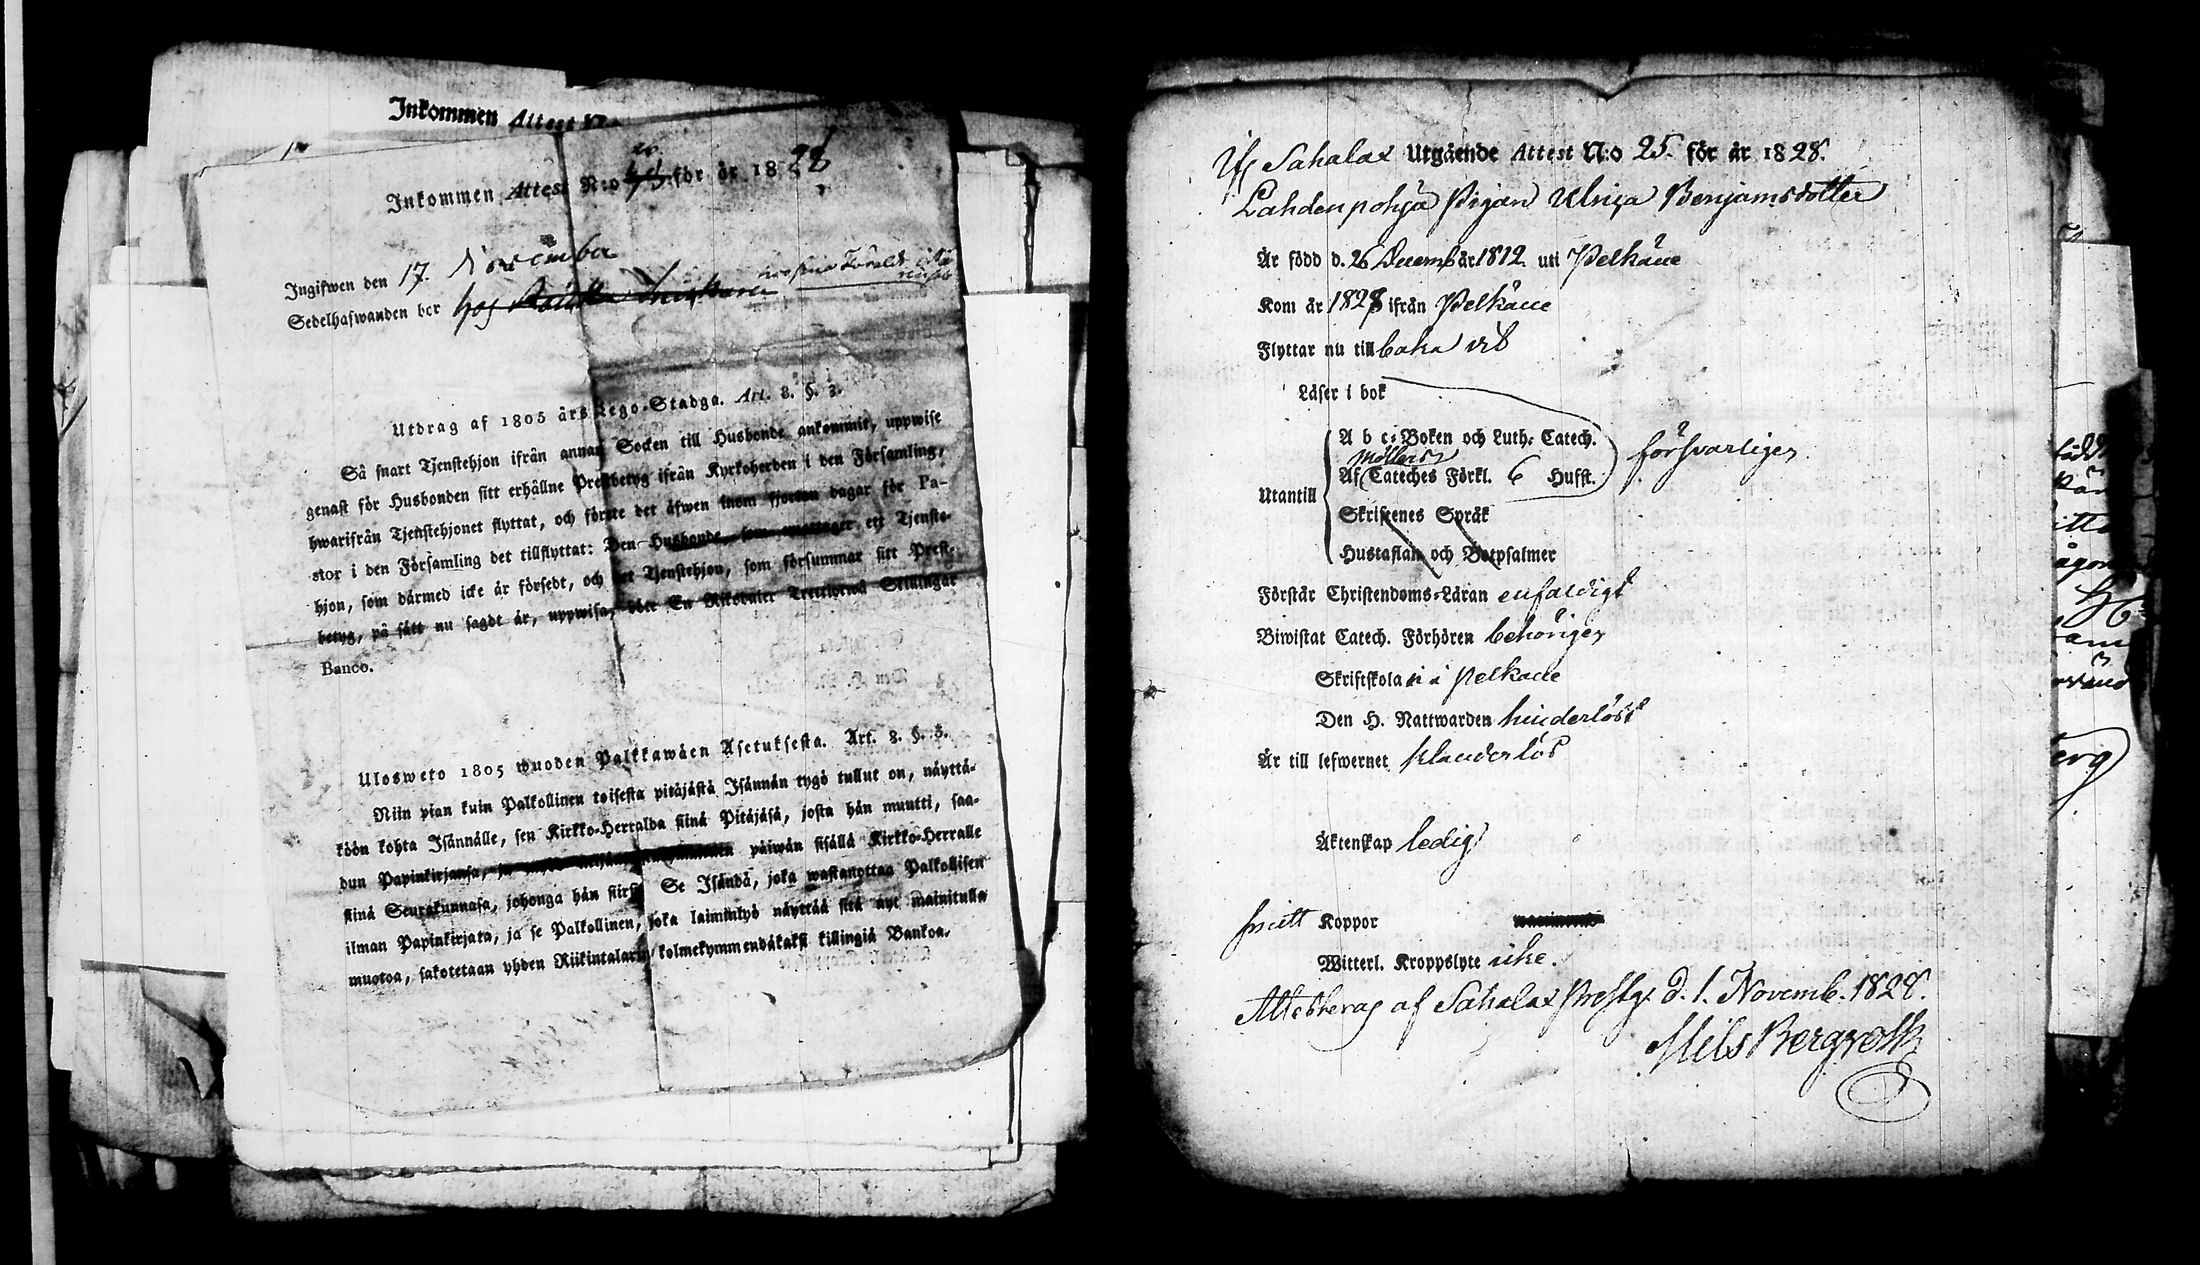 Inkommen Attest N:o
Inkommen Attest N:o för år 1828
Ingifwen den 17 November
Sedelhafwanden bor hos
Utdrag af 1805 års Lego-Stadga. Art. 8. §. 3.
Så snart Tjenstehjon ifrån annan Socken till Husbonde ankommit, uppwise
genast för Husbonden sitt erhållne Prestbetyg ifrån Kyrkoherden i den Församling,
hwarifrån Tjenstehjonet flyttat, och förete det äfwen inom fjorton dagar för Pa-
stor i den Församling det tillflyttat: Den Husbonde, som emottager ett Tjenste-
hjon, som därmed icke är försedt, och det Tjenstehjon, som försummar sitt Prest-
betyg, på sätt nu sagdt är, uppwisa, böte En Riksdaler Trettiotwå Skillingar
Banco.
Ulosweto 1805 wuoden Palkkawäen Asetuksesta. Art. 8. §. 3.
Niin pian kuin Palkollinen toisesta pitäjästä Isännän tygö tullut on, näyttä-
köön kohta Isännälle, sen Kirkko-Herralda siinä Pitäjäsä, josta hän muutti, saa-
dun Papinkirjansa, päiwän sisällä Kirkko-Herralle
siinä Seurakunnasa, johonga hän siirsi Se Isändä, joka wastanottaa Palkollisen
ilman Papinkirjata, ja se Palkollinen, joka laiminlyö näyttää sitä nyt mainitulla
muotoa, sakotetaan yhden Riikintalarin kolmekymmendäkaksi killingiä Bankoa.
Uti Sahalax Utgående Attest N:o 25. för år 1828.
Lahdenpohja Pigan Ulrica Benjamsdotter
Är född d. 26 Decemb år 1812 uti Pelkäne
Kom år 1828 ifrån Pelkäne
Flyttar nu till baka dit
Läser i bok
A b c-Boken och Luth. Catech. försvarligen
Utantill Af Cateches Förkl. 6 Hufst.
Skriftenes Språk
Hustaflan och Botpsalmer
Förstår Christendoms-Läran enfaldigt
Biwistat Catech. Förhören behörigen
Skriftskolan i Pelkäne
Den H. Nattwarden hinderlöst
Är till lefwernet klanderlös
Äktenskap ledig
haft Koppor
Witterl. Kroppslyte icke.
Attesteras af Sahalax Prestg. d. 1. Novemb. 1828.
Nils Bergroth